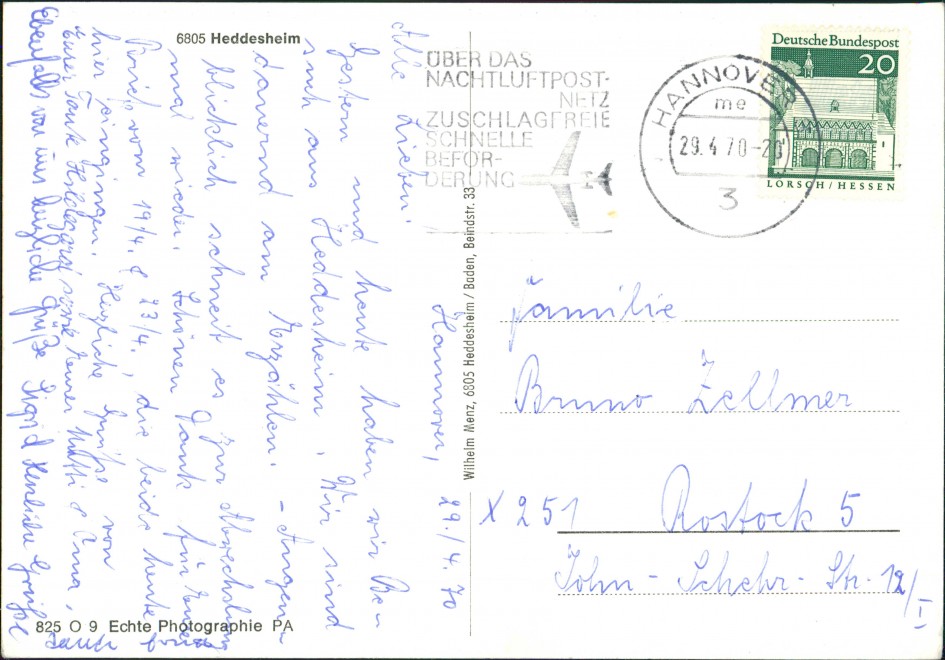 6805 Heddesheim
ÜBER DAS
NACHTLUFTPOST-
NETZ
ZUSCHLAGFREIE
SCHNELLE
BEFÖR-
DERUNG
HANNOVER
me
29.4.70-20
3
Deutsche Bundespost
20
LORSCH/HESSEN
Hannover, 29./4. 70
Alle Lieben!
Gestern und heute haben wir Be-
such aus Heddesheim. Wir sind
dauernd am Erzählen. – Augen-
blicklich schneit es zur Abwechslung
mal wieder. Schönen Dank für Eure
vom 19/4. & 23/4., die beide heute
hier eingingen. Herzliche Grüße von
Eurer Tante Hildegard sowie Eurer Mutti & Oma,
Ebenfalls von uns herzliche Grüße Sigrid Herzliche Grüße
Wilhelm Menz, 6805 Heddesheim / Baden, Beindstr. 33
Familie
Bruno Zellmer
X 251 Rostock 5
John-Schehr-Str. 12/I
825 O 9 Echte Photographie PA